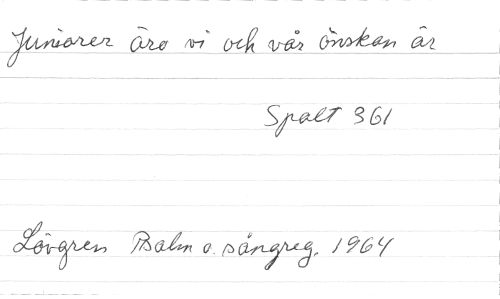 Juniorer äro vi och vår önskan är
Spalt 361
Lövgren Psalm o. sångreg. 1964